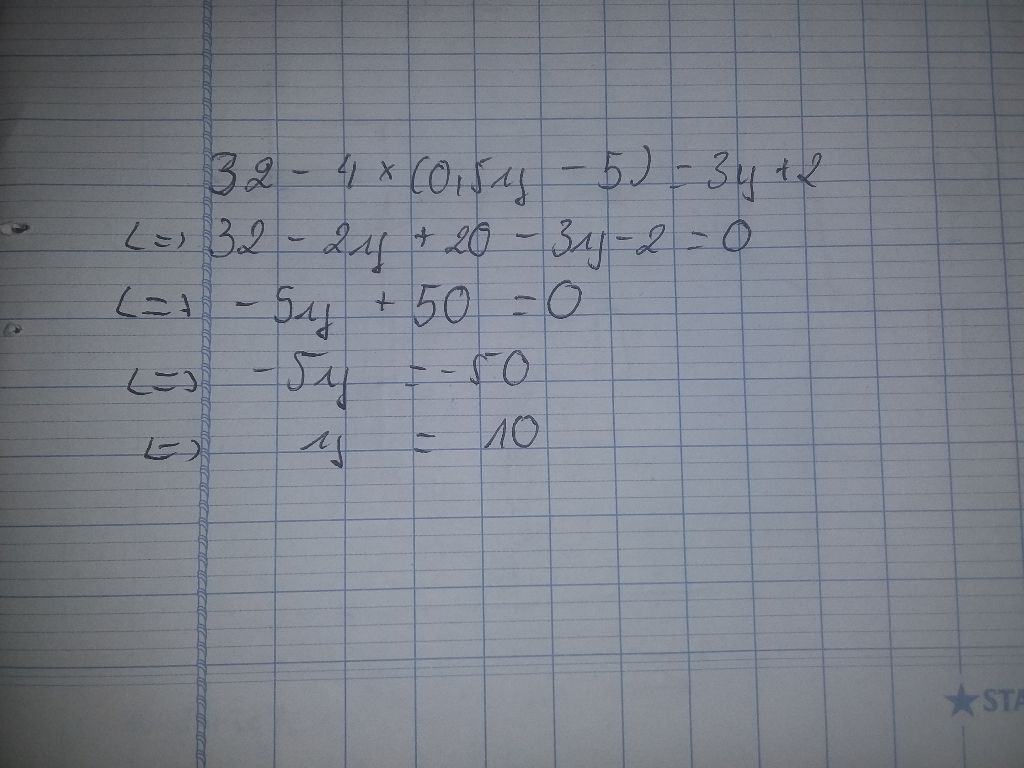 32 - 4 × (0,5y - 5) = 3y + 2
<=> 32 - 2y + 20 - 3y - 2 = 0
<=> - 5y + 50 = 0
<=> - 5y = - 50
<=> y = 10
★ STA